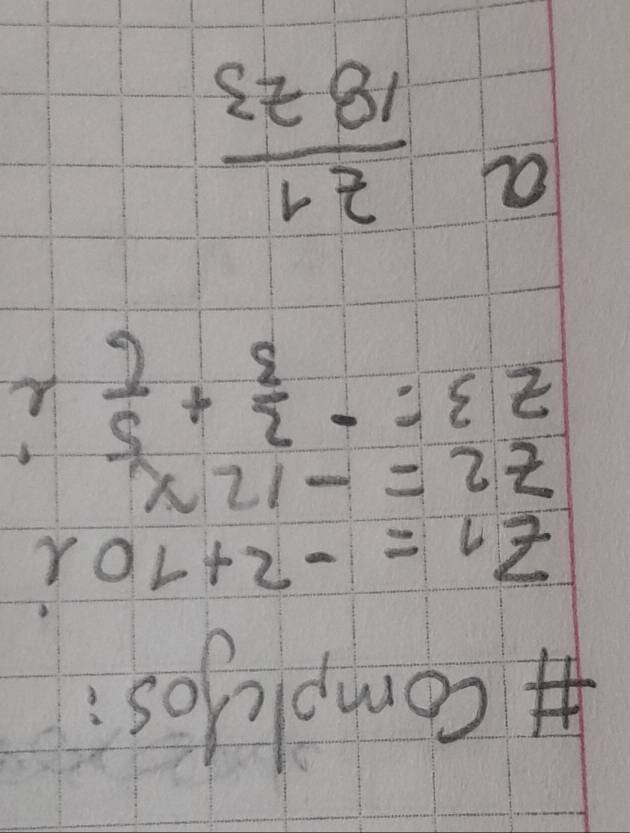 # Complejos:
Z1 = -2+10i
Z2 = -12i
Z3 = -2/3 + 5/6 i
a Z1/18 Z3